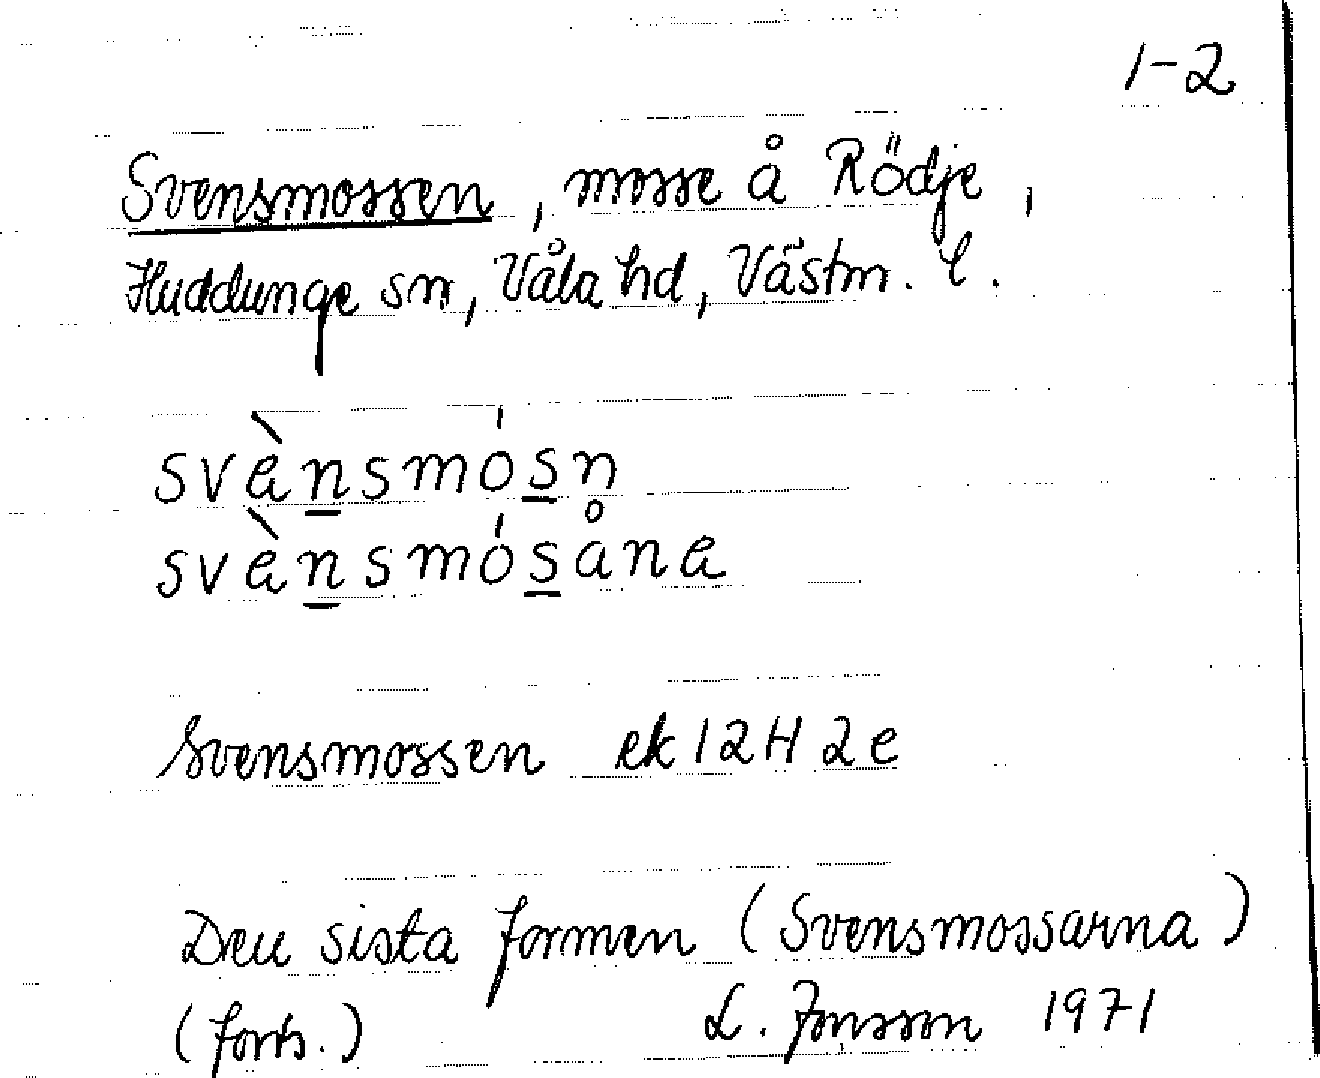 1-2
Svensmossen, mosse å Rödje,
Huddunge sn, Våla hd, Västm. l.
svènsmósn
svènsmósåna
Svensmossen ek 12H 2e
Den sista formen (Svensmossarna)
(forts.) L. Jonsson 1971